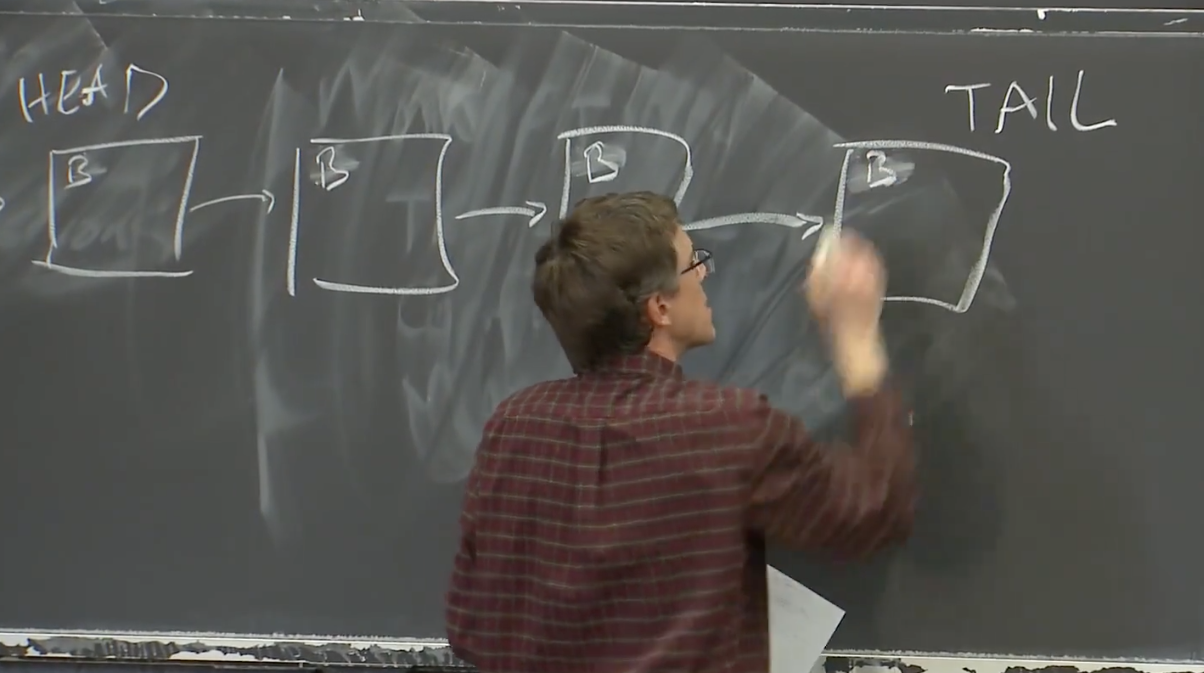 HEAD
TAIL
B B B B